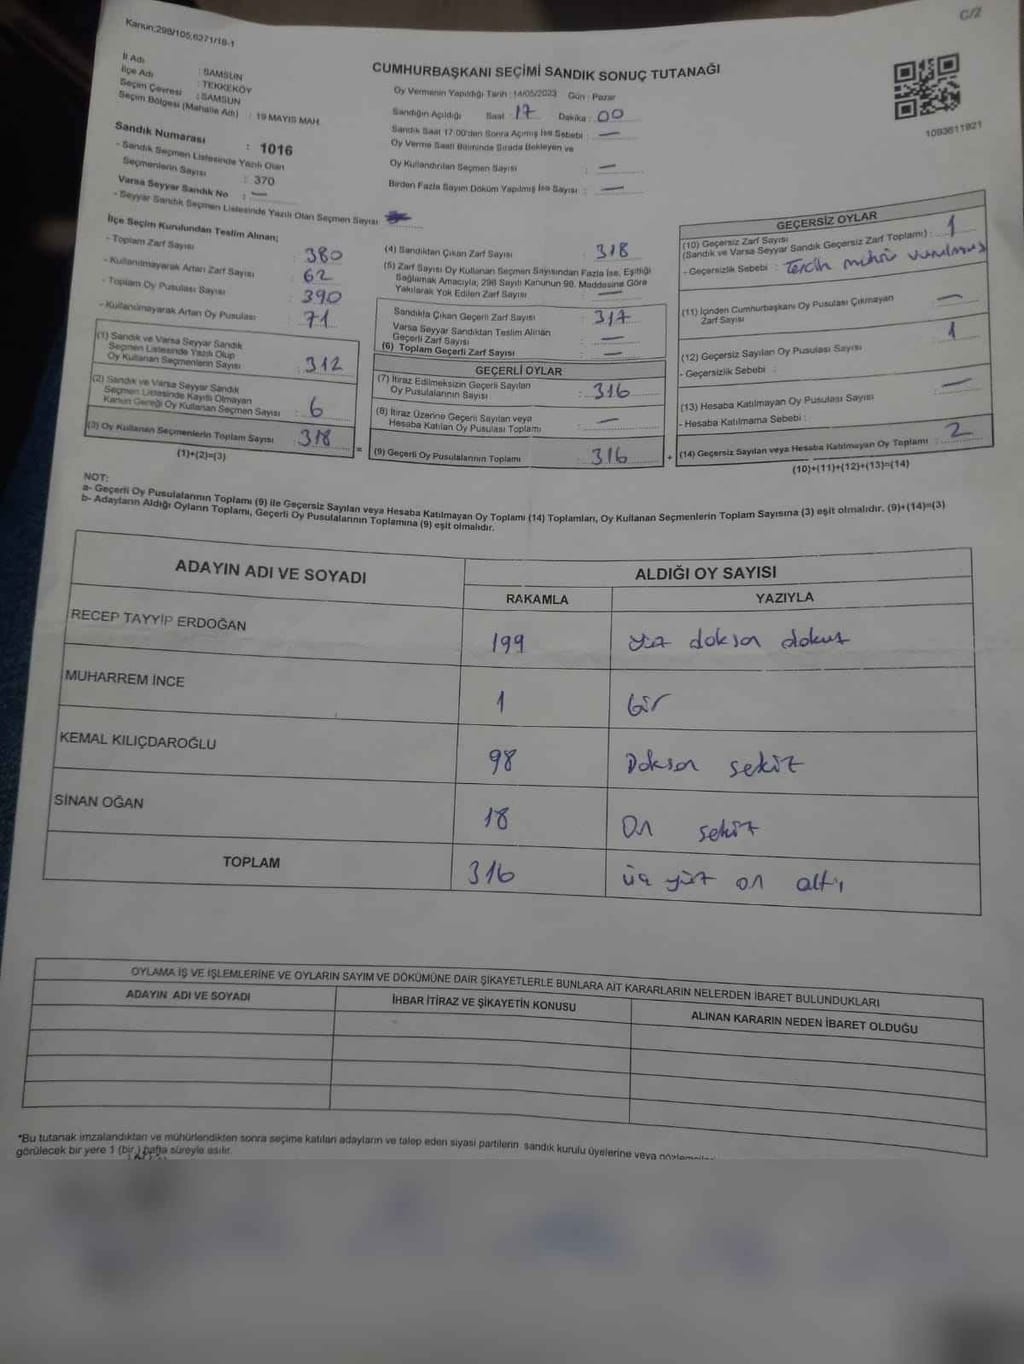 C/Z
Kanun;298/105,6271/18-1
CUMHURBAŞKANI SEÇİMİ SANDIK SONUÇ TUTANAĞI
İl Adı : SAMSUN
İlçe Adı : TEKKEKÖY
Seçim Çevresi : SAMSUN
Seçim Bölgesi (Mahalle Adı) : 19 MAYIS MAH.
Sandık Numarası : 1016
- Sandık Seçmen Listesinde Yazılı Olan
Seçmenlerin Sayısı : 370
Varsa Seyyar Sandık No : —
- Seyyar Sandık Seçmen Listesinde Yazılı Olan Seçmen Sayısı
Oy Vermenin Yapıldığı Tarih : 14/05/2023 Gün : Pazar
Sandığın Açıldığı Saat : 17 Dakika : 00
Sandık Saat 17:00'den Sonra Açılmış İse Sebebi : —
Oy Verme Saati Bitiminde Sırada Bekleyen ve
Oy Kullandırılan Seçmen Sayısı : —
Birden Fazla Sayım Döküm Yapılmış İse Sayısı : —
1093611921
İlçe Seçim Kurulundan Teslim Alınan;
- Toplam Zarf Sayısı : 380
- Kullanılmayarak Artan Zarf Sayısı : 62
- Toplam Oy Pusulası Sayısı : 390
- Kullanılmayarak Artan Oy Pusulası : 71
(1) Sandık ve Varsa Seyyar Sandık
Seçmen Listesinde Yazılı Olup
Oy Kullanan Seçmenlerin Sayısı : 312
(2) Sandık ve Varsa Seyyar Sandık
Seçmen Listesinde Kayıtlı Olmayan
Kanun Gereği Oy Kullanan Seçmen Sayısı : 6
(3) Oy Kullanan Seçmenlerin Toplam Sayısı : 318
(1)+(2)=(3)
(4) Sandıktan Çıkan Zarf Sayısı : 318
(5) Zarf Sayısı Oy Kullanan Seçmen Sayısından Fazla İse, Eşitliği
Sağlamak Amacıyla; 298 Sayılı Kanunun 98. Maddesine Göre
Yakılarak Yok Edilen Zarf Sayısı : —
Sandıkla Çıkan Geçerli Zarf Sayısı : 317
Varsa Seyyar Sandıktan Teslim Alınan
Geçerli Zarf Sayısı : —
(6) Toplam Geçerli Zarf Sayısı : —
GEÇERLİ OYLAR
(7) İtiraz Edilmeksizin Geçerli Sayılan
Oy Pusulalarının Sayısı : 316
(8) İtiraz Üzerine Geçerli Sayılan veya
Hesaba Katılan Oy Pusulası Toplamı : —
= (9) Geçerli Oy Pusulalarının Toplamı : 316
GEÇERSİZ OYLAR
(10) Geçersiz Zarf Sayısı
(Sandık ve Varsa Seyyar Sandık Geçersiz Zarf Toplamı) : 1
- Geçersizlik Sebebi : Tercih mührü vurulmuş
(11) İçinden Cumhurbaşkanı Oy Pusulası Çıkmayan
Zarf Sayısı : —
(12) Geçersiz Sayılan Oy Pusulası Sayısı : 1
- Geçersizlik Sebebi :
(13) Hesaba Katılmayan Oy Pusulası Sayısı : —
- Hesaba Katılmama Sebebi :
+ (14) Geçersiz Sayılan veya Hesaba Katılmayan Oy Toplamı : 2
(10)+(11)+(12)+(13)=(14)
NOT:
a- Geçerli Oy Pusulalarının Toplamı (9) ile Geçersiz Sayılan veya Hesaba Katılmayan Oy Toplamı (14) Toplamları, Oy Kullanan Seçmenlerin Toplam Sayısına (3) eşit olmalıdır. (9)+(14)=(3)
b- Adayların Aldığı Oyların Toplamı, Geçerli Oy Pusulalarının Toplamına (9) eşit olmalıdır.
ADAYIN ADI VE SOYADI
ALDIĞI OY SAYISI
RAKAMLA YAZIYLA
RECEP TAYYİP ERDOĞAN 199 yüz doksan dokuz
MUHARREM İNCE 1 bir
KEMAL KILIÇDAROĞLU 98 Doksan sekiz
SİNAN OĞAN 18 On sekiz
TOPLAM 316 üç yüz on altı
OYLAMA İŞ VE İŞLEMLERİNE VE OYLARIN SAYIM VE DÖKÜMÜNE DAİR ŞİKAYETLERLE BUNLARA AİT KARARLARIN NELERDEN İBARET BULUNDUKLARI
ADAYIN ADI VE SOYADI İHBAR İTİRAZ VE ŞİKAYETİN KONUSU ALINAN KARARIN NEDEN İBARET OLDUĞU
*Bu tutanak imzalandıktan ve mühürlendikten sonra seçime katılan adayların ve talep eden siyasi partilerin sandık kurulu üyelerine veya
görülecek bir yere 1 (bir) hafta süreyle asılır.